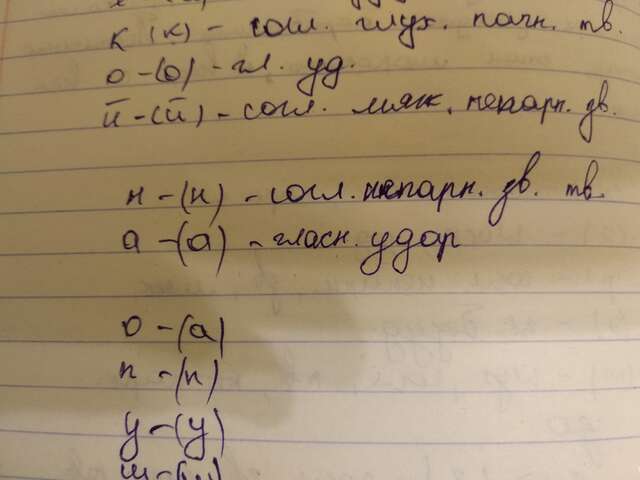 к (к) - согл. глух. парн. тв.
о - (о) - гл. уд.
й - (й) - согл. мяк. непарн. зв.
н - (н) - согл. непарн. зв. тв.
а - (а) - гласн. удар
о - (а)
п - (п)
у - (у)
ш - (ш)